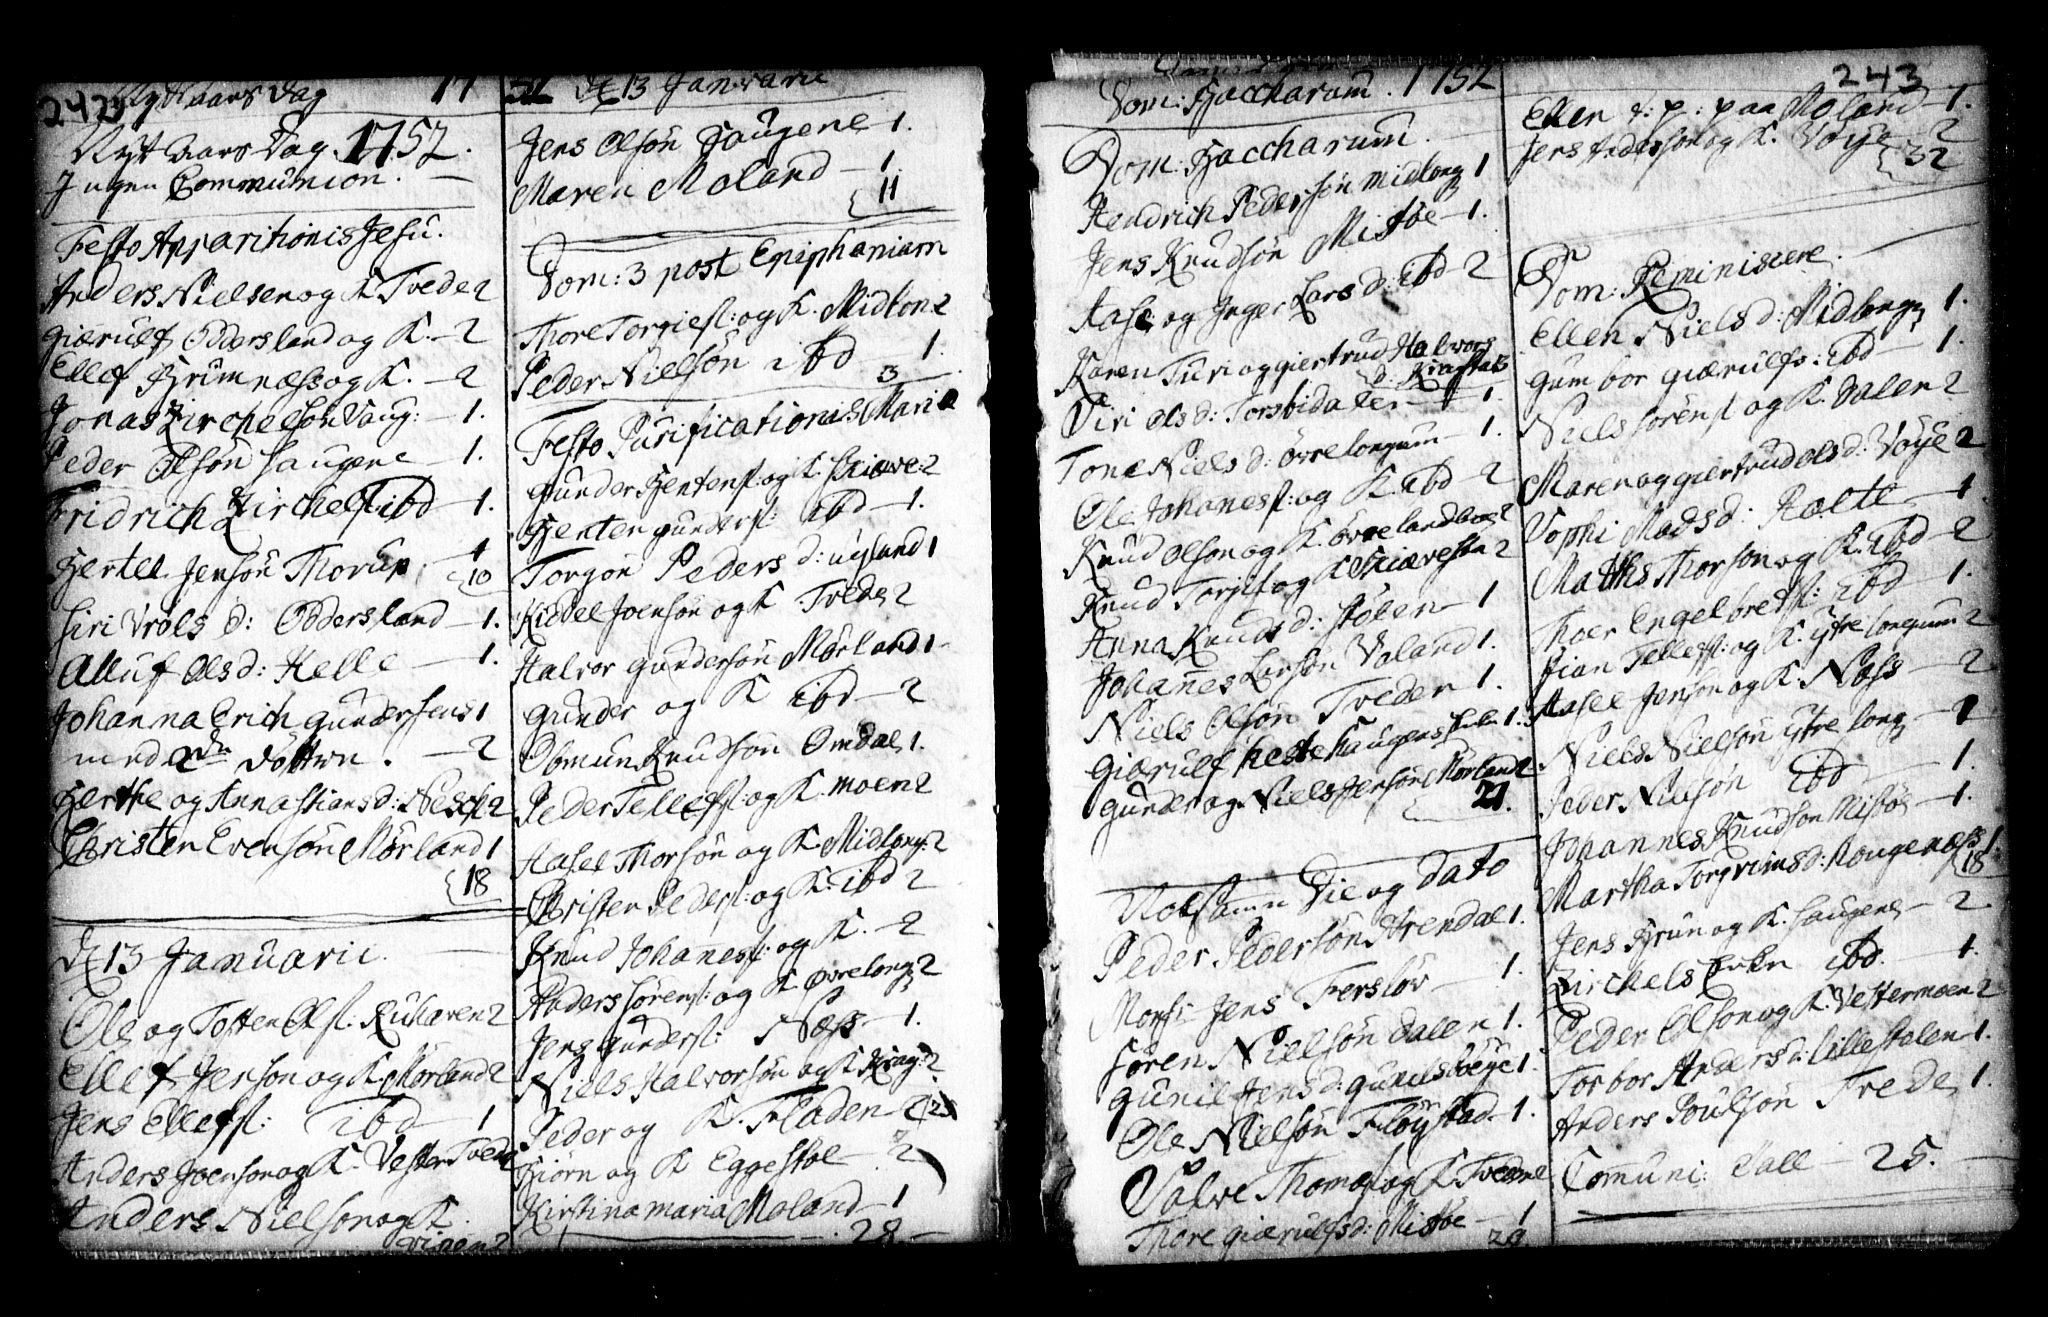 242 Nyt aars dag 17
Nyt Aars Dag. 1752.
Ingen Communion.
Festo Apparitionis Jesu.
Anders Nielsen og K. Tvede 2
giærulf Oddersland og K. - 2
Ellef Grimnæss og K. - 2
Jonas Zirchelsøn Saug: - 1.
Peder Olsøn Saugene - 1.
Fridrich Zirchels: ibd - 1.
Hertel Jensøn Thorup - 1
10
Siri Vrøls d: Oddersland - 1.
Alluf Olsd: Helle - 1.
Johanna Erich gundersens 1
med 2de Døttre. - 2
Berthe og Anna Stians d: Neschel 2
Christen Evensøn Mørland 1
18
d 13 Januarii.
Ole og Tosten Ols: Rukæren 2
Ellef Jensøn og K. Mørland 2
Jens Ellefs: ibd - 1
Anders Joensøn og K. Vester Tvede
Anders Nielsøn og K.
2
52 d 13 Januarii
Jens Olsøn Haugene 1.
Maren Moland - 1.
11
Dom: 3 post Epiphaniam
Thore Torgies: og K. Midlon 2
Peder Nielsøn ibd - 1.
3
Festo Purificationis Mariæ
gunder Hentens: og K. Skiæve: 2
Henten gunders: ibd - 1.
Torgon Peders d: ugland 1
Kiddel Joensøn og K. Tvede 2
Halvor gundersøn Mørland 1
gunder og K ibd - 2
Obmun Knudsøn Omdal 1.
Peder Tellefs: og K. moen 2
Aasel Thorsøn og K. Midlong: 2
Christen Peders: og K. ibd 2
Knud Johaness: og K. - 2
Anders Sørens: og K. øvrelong 2
Jens gunders: Næss - 1.
Niels Halvorsøn og K Krag: 2
Peder og K. Fladen - 2 25
Biørn og K Eggestøl - 2
Kirstina maria Moland - 1
28
Dom: Zaccharum. 1752
Dom: Zaccharum
Hendrich Pedersøn midlong 1
Jens Knudsøn Mistøe - 1.
Aase og Inger Lars d: ibd - 2
Karen Turi og giertrud Halvors
d:
Siri Ols d: Torsbidalen - 1.
Tone Niels d: øvrelongum - 1.
Ole Johaness: og K. ibd - 2
Knud Olsøn og K. øvrelandvog 2
Knud Torgils: og K Skiævesta 2
Anna Knuds d: Støelen - 1
Johanes Larsøn Valand 1.
Niels Olsøn Tveden 1.
giærulf hestehaugens 1.
gunder og Niels Jensøn Mørland 2
21.
Die og dato
Peder Pedersøn Arendal 1.
Monsi: Jens Ferslov - 1.
Søren Nielsøn dalen 1.
gunil Jens d: gunilsbøye 1.
Ole Nielsøn Fløystad - 1.
Salve Thomæs: og K Tvedene
Thore giærulfs d: Mistøe - 1
243
Ellen d: p: paa Moland 1.
Jens Andersøn og K. Voye - 2
32
Dom: Reminiscere.
Ellen Niels d: Midlong 1.
gumbor giærulfs: ibd - 1.
Niels Sørens: og K. Dalen 2
Maren og giertrud Ols d: Voye 2
Sophi Mads d: Holte - 1
Mathis Thorsøn og K. ibd - 2
Thoer Engelbreds: ibd - 1.
Stian Tellefs: og K. ytre longum 2
Aasel Jensøn og K. Næss - 2
Niels Nielsøn ytre long - 1
Peder Nilsøn ibd - 1.
Johannes Knudsøn Mistøe - 1.
Martha Torgrims d: Hougenæss 1
18
Jens Brun og K. Saugene - 2
Zirchels Enken ibd. - 1.
Peder Olsøn og K. Vestermoen 2
Torbor Anders d: Lillestølen 1.
Anders Poulsøn Trede 1.
Comuni: Tall - 25.